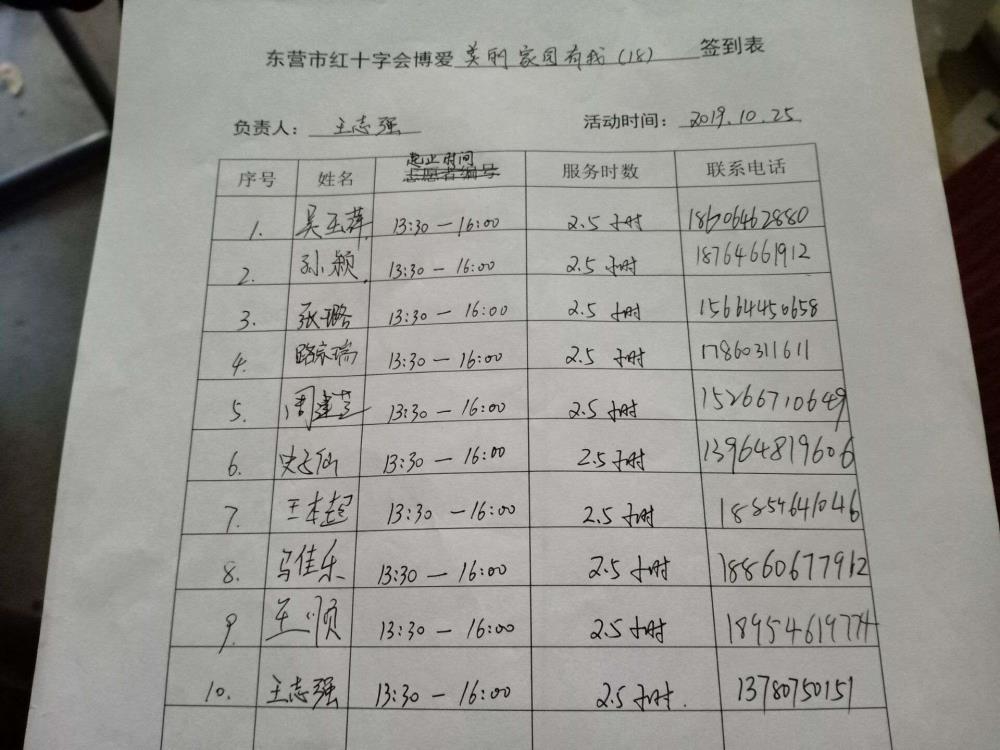 东营市红十字会博爱 美丽家园有我(18) 签到表
负责人: 王志强 活动时间: 2019.10.25
序号 姓名 起止时间 志愿者编号 服务时数 联系电话
1. 吴玉萍 13:30—16:00 2.5小时 18606462880
2. 孙颖 13:30—16:00 2.5小时 18764661912
3. 张璐 13:30—16:00 2.5小时 15664450658
4. 路宗瑞 13:30—16:00 2.5小时 17860311611
5. 周 13:30—16:00 2.5小时 15266710649
6. 史云仙 13:30—16:00 2.5小时 13964819606
7. 王本超 13:30—16:00 2.5小时 18854641046
8. 马佳乐 13:30—16:00 2.5小时 18860677912
9. 王顺 13:30—16:00 2.5小时 18954619774
10. 王志强 13:30—16:00 2.5小时. 13780750151